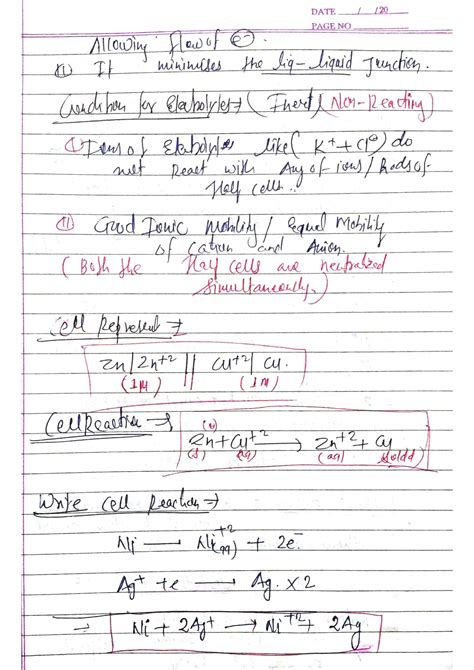 DATE / /20
PAGE NO
Allowing flow of e⊖.
(II) It minimises the liq-liquid Junction.
Condition for Electrolytes → (Inert / Non-Reacting)
(I) Ions of Electrolytes like ( K⁺ + Cl⊖ ) do
not React with Any of ions / Rods of
Half cells.
(II) Good Ionic Mobility / Equal Mobility
of Cation and Anion.
( Both the Half cells are neutralized
Simultaneously. )
Cell Represent →
Zn | Zn⁺² || Cu⁺² | Cu.
(1M) (1M)
Cell Reaction →
Zn + Cu⁺² ⟶ Zn⁺² + Cu
(s) (aq) (aq)
Write Cell Reaction →
Ni ⟶ Ni⁺² + 2e⁻
Ag⁺ + e ⟶ Ag. × 2
→ Ni + 2Ag⁺ ⟶ Ni⁺² + 2Ag